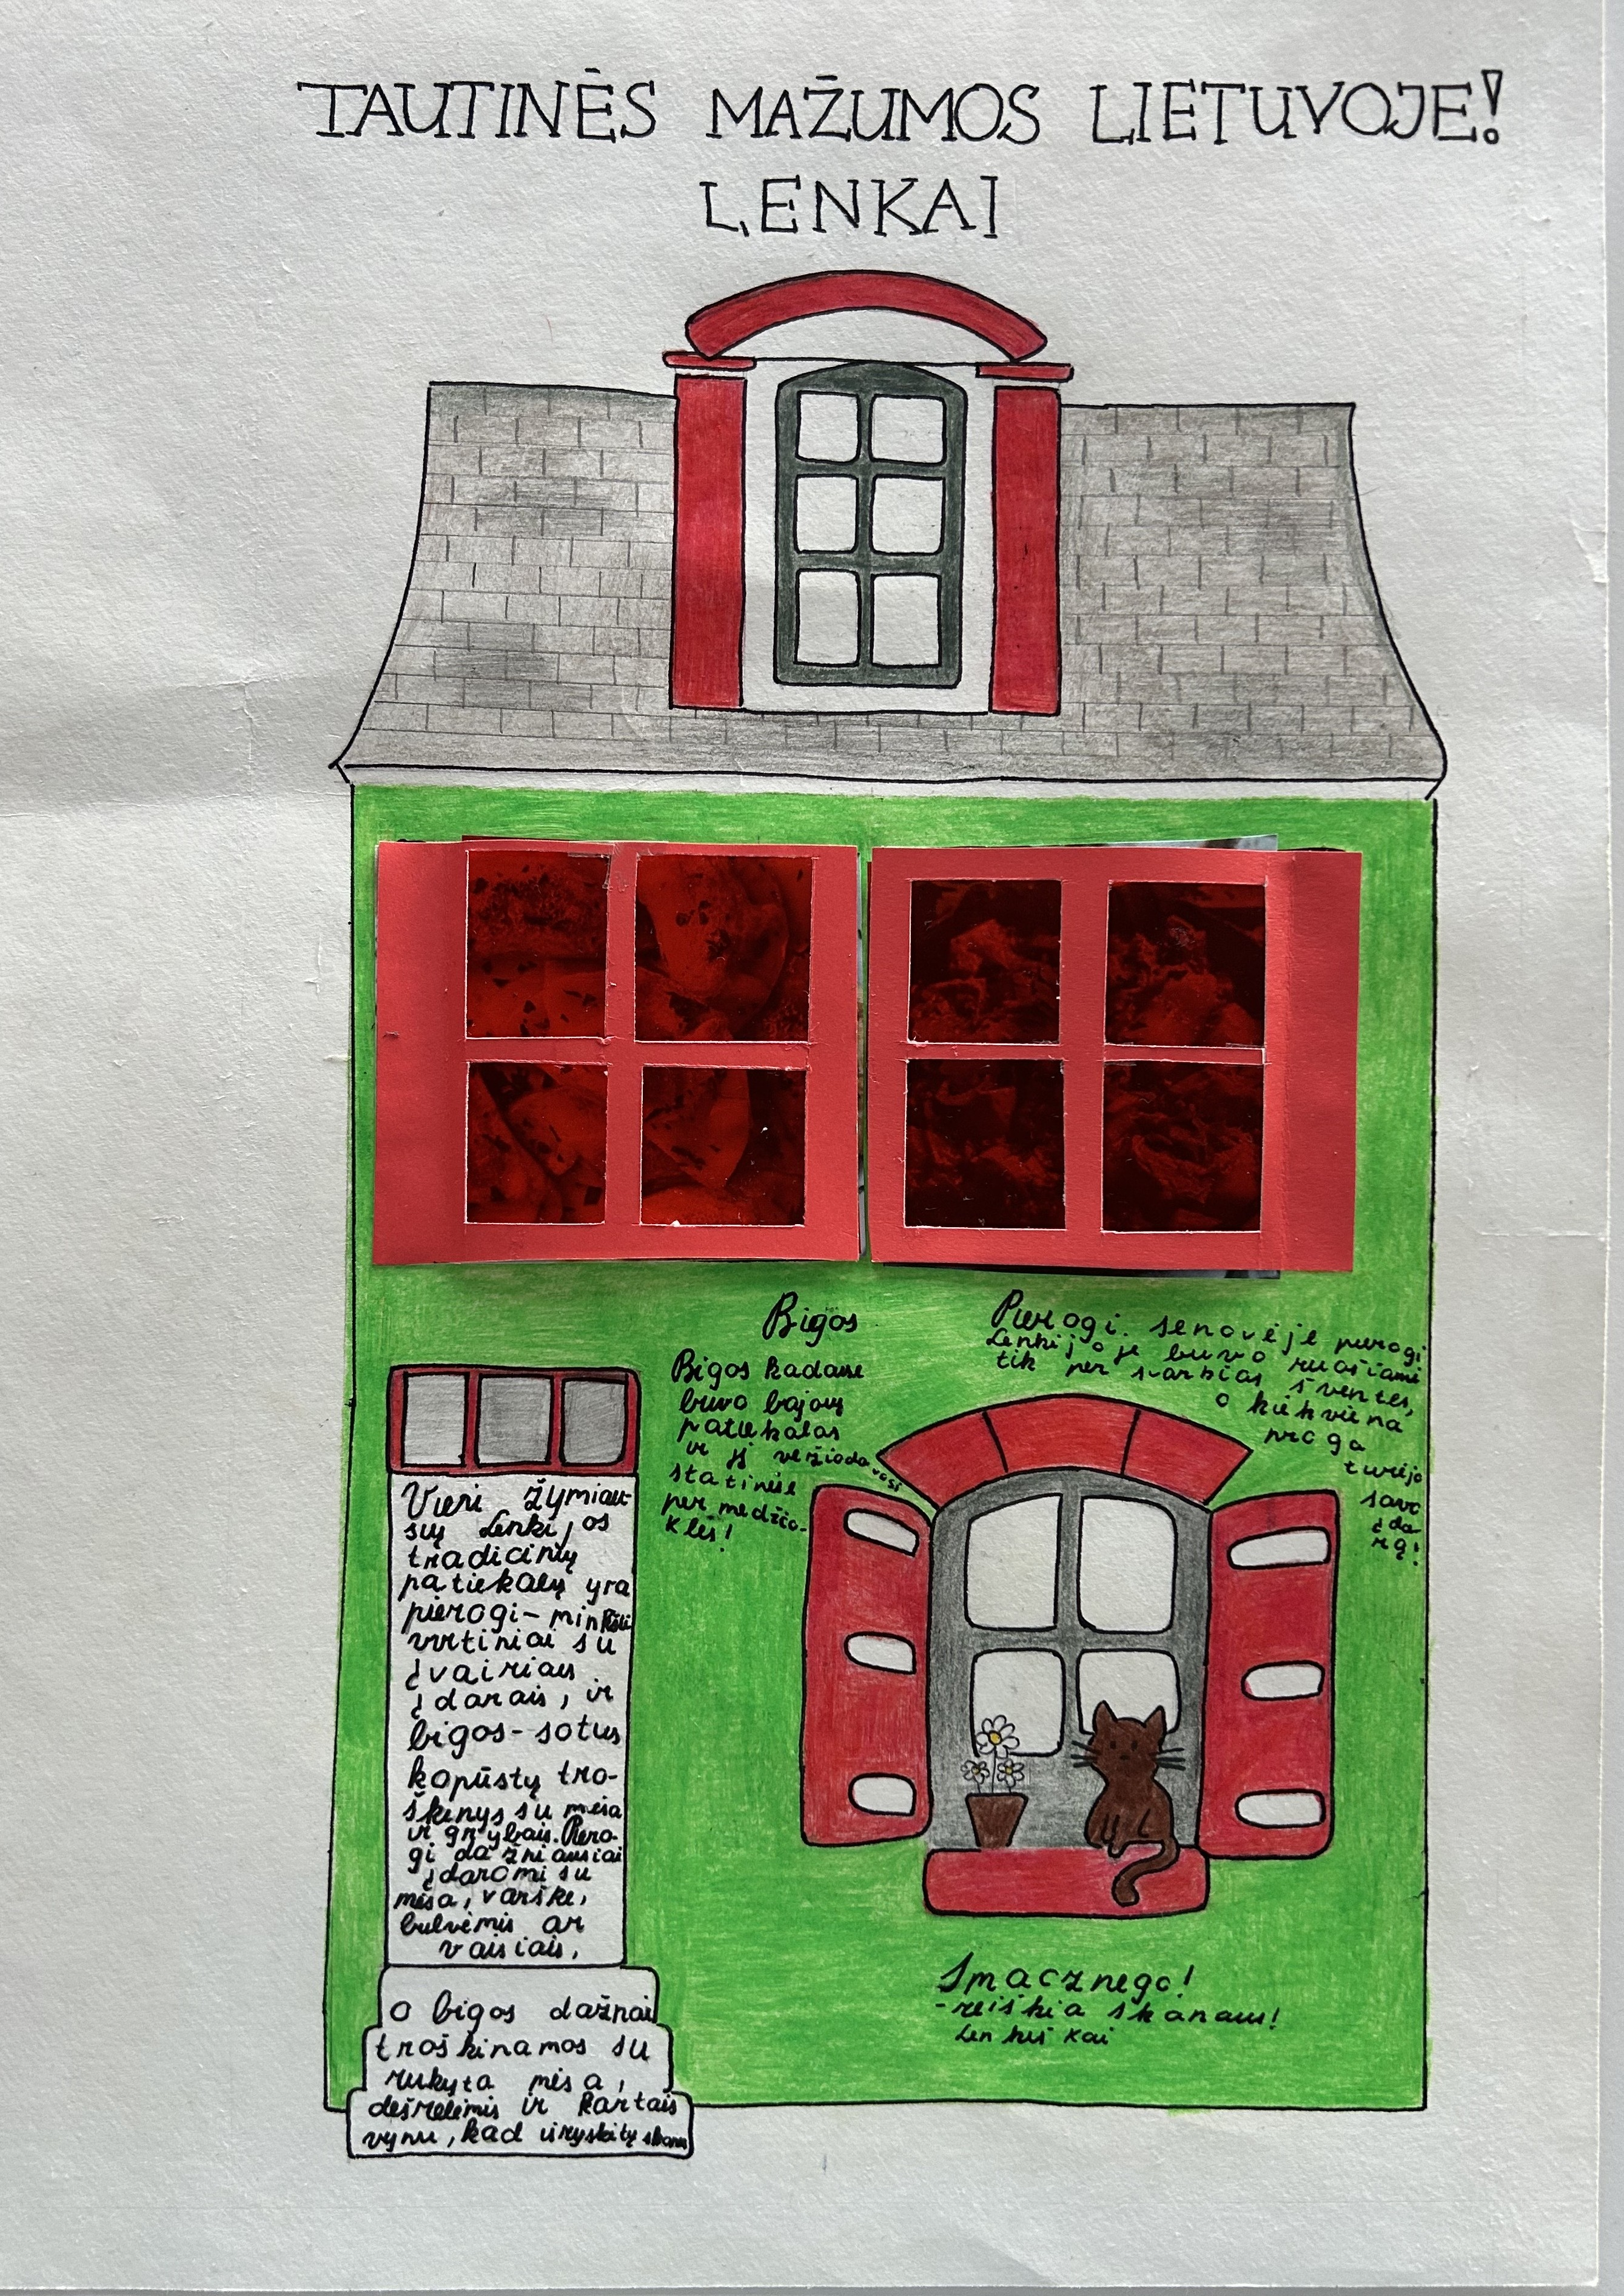 TAUTINĖS MAŽUMOS LIETUVOJE!
LENKAI
Bigos
Bigos kadaise
buvo bajorų
patiekalas
ir jį vežiodavosi
statinėse
per medžio-
kles!
Pierogi. senovėje pierogi
Lenkijoje buvo ruošiami
tik per svarbias šventes,
o kiekviena
proga
turėjo
savo
įda-
rą!
Vieni žymiau-
sių Lenkijos
tradicinių
patiekalų yra
pierogi- minkšti
virtiniai su
įvairiais
įdarais, ir
bigos- sotus
kopūstų tro-
škinys su mėsa
ir grybais. Piero-
gi dažniausiai
įdaromi su
mėsa, varške,
bulvėmis ar
vaisiais,
o bigos dažnai
troškinamos su
rukyta mėsa,
dešrelėmis ir kartais
vynu, kad išryškitų skonį
Smacznego!
-reiškia skanaus!
Lenkiškai